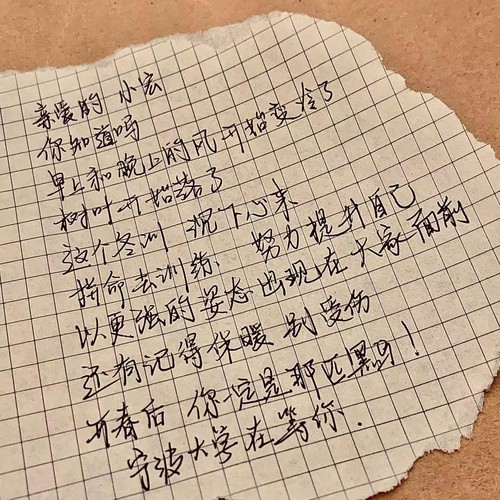 亲爱的 小宏
你知道吗
早上和晚上的风开始变冷了
树叶开始落了
这个冬训 沉下心来
拼命去训练 努力提升自己
以更强的姿态出现在大家面前
还有记得保暖 别受伤
开春后 你一定是那匹黑马!
宁波大学在等你.